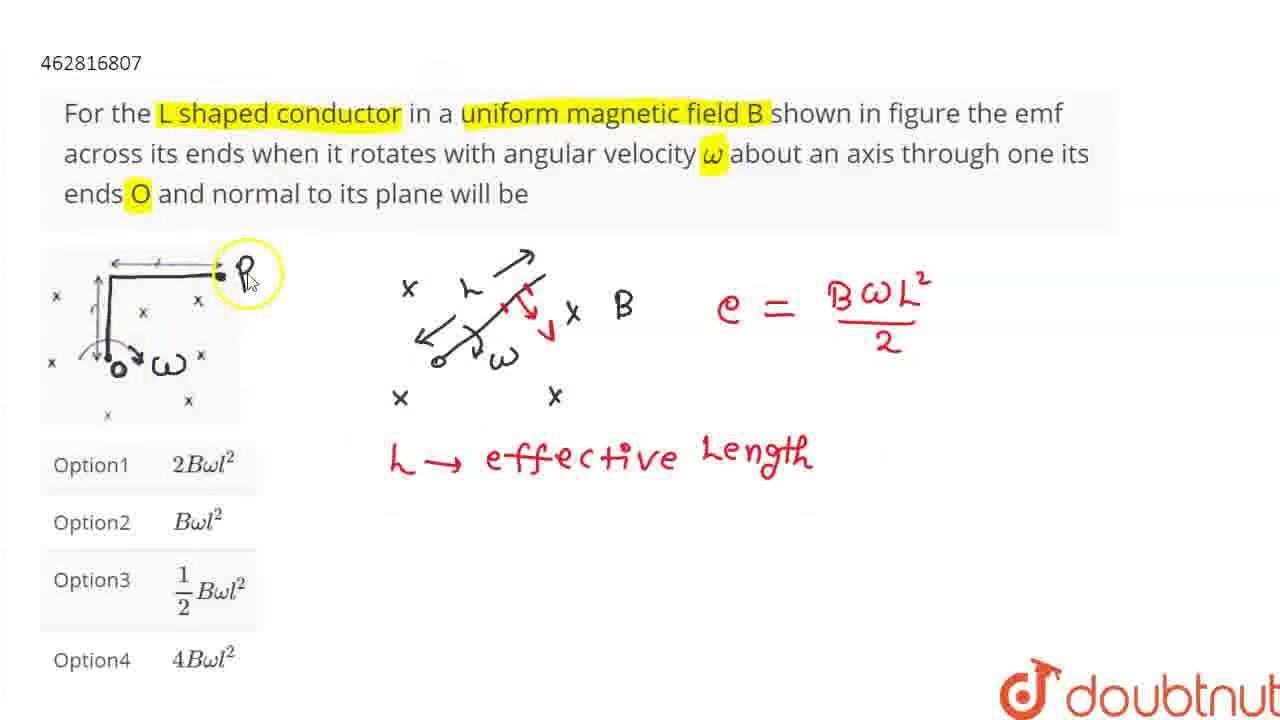 462816807
For the L shaped conductor in a uniform magnetic field B shown in figure the emf
across its ends when it rotates with angular velocity ω about an axis through one its
ends O and normal to its plane will be
l
P
x x x
l
x O ω x
x x
x L x B
O ω v
x x
e = BωL²/2
L → effective Length
Option1 2Bωl²
Option2 Bωl²
Option3 1/2 Bωl²
Option4 4Bωl²
doubtnut